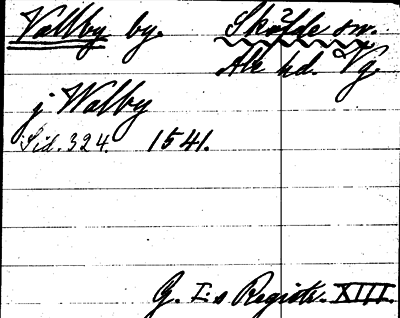 Vallby by. Skölde sn.
Ale hd. Vg.
j Walby
Sid. 324. 1541.
G. I:s Registr. XIII.